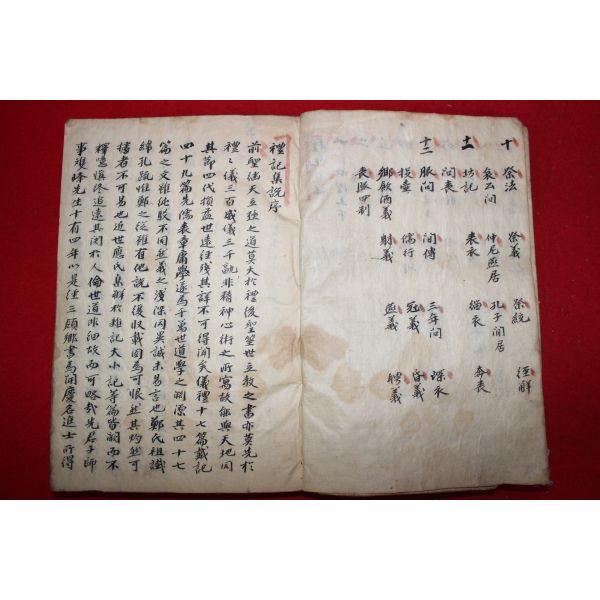 十 祭法 祭義 祭統 經解
哀公問 仲尼燕居 孔子閒居
十一 坊記 表記 緇衣 奔喪
問喪
十二 服問 間傳 三年問 深衣
投壺 儒行 冠義 昏義
鄉飮酒義 射義 燕義 聘義
喪服四制
禮記集說序
前聖繼天立極之道莫大於禮後聖垂世立教之書亦莫先於
禮〻儀三百威儀三千孰非精神心術之所寓故能與天地同
其節四代損益世遠經殘其詳不可得聞矣儀禮十七篇戴記
四十九篇先儒表章庸學遂爲千萬世道學之淵源其四十七
篇之文雖純駁不同然義之淺深同異誠未易言也鄭氏祖讖
緯孔疏惟鄭之從雖有他說不復收載固爲可恨然其灼然可
據者不可易也近世應氏集解於雜記大小記等篇皆闕而不
釋噫愼終追遠其関於人倫世道非細故而可略哉先君子師
事雙峰先生十有四年以是經三領鄉書爲開慶名進士所得